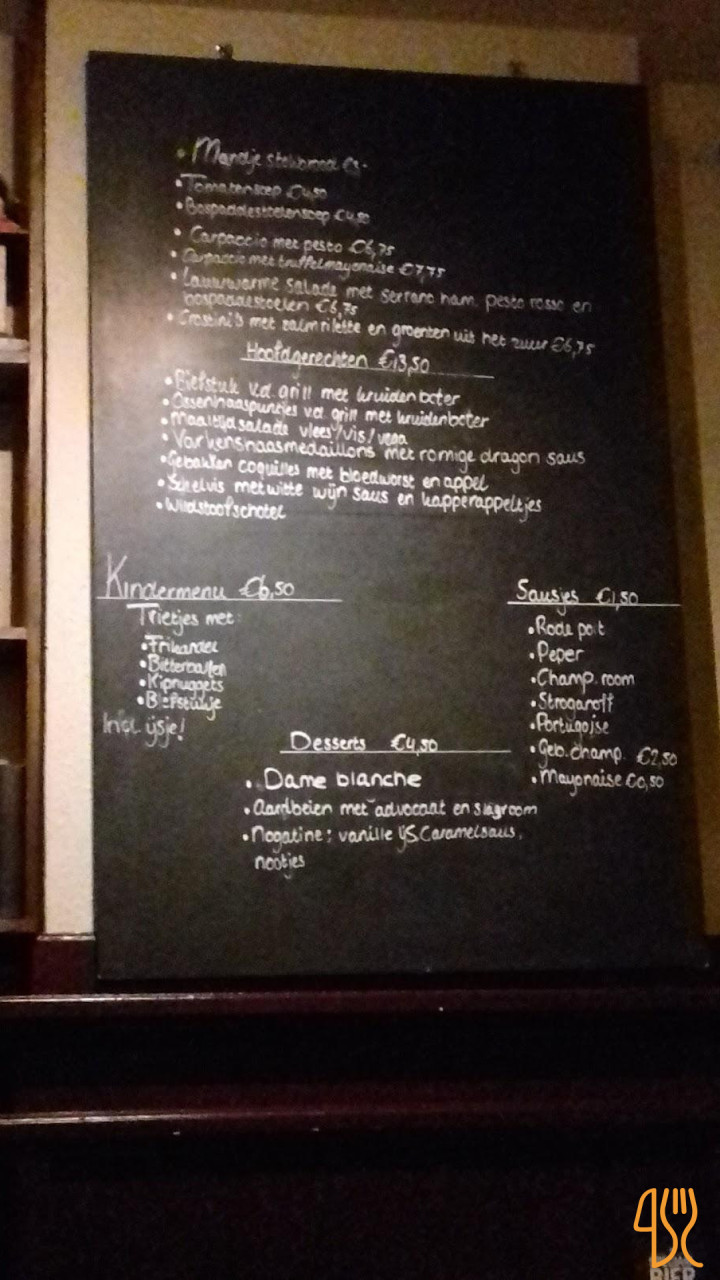 • Mandje stokbrood €3,-
• Tomatensoep €4,50
• Bospaddestoelensoep €4,50
• Carpaccio met pesto €6,75
• Carpaccio met truffelmayonaise €7,75
• Lauwwarme salade met serrano ham, pesto rosso en
bospaddestoelen €6,75
• Crostini's met zalmrilette en groenten uit het zuur €6,75
Hoofdgerechten €13,50
• Biefstuk v.d. grill met kruidenboter
• Ossenhaaspuntjes v.d. grill met kruidenboter
• Maaltijdsalade vlees/vis/vega
• Varkenshaasmedaillons met romige dragon saus
• Gebakken coquilles met bloedworst en appel
• Schelvis met witte wijn saus en kapperappeltjes
• Wildstoofschotel
Kindermenu €6,50
Frietjes met:
• Frikandel
• Bitterballen
• Kipnuggets
• Biefstukje
Incl. ijsje!
Sausjes €1,50
• Rode port
• Peper
• Champ. room
• Stroganoff
• Portugoise
• Geb. champ. €2,50
• Mayonaise €0,50
Desserts €4,50
• Dame blanche
• Aardbeien met advocaat en slagroom
• Nogatine: vanille ijs, Caramelsaus,
nootjes
BIER